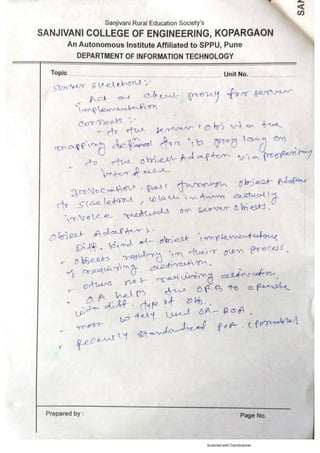 Sanjivani Rural Education Society's
SANJIVANI COLLEGE OF ENGINEERING, KOPARGAON
An Autonomous Institute Affiliated to SPPU, Pune
DEPARTMENT OF INFORMATION TECHNOLOGY
SAN
Topic Unit No.
Server skeletons :-
Act as client proxy for server
implementation
connects :-
- to the server obj via the
mapping defined for its prog lang on
- to the object Adaptern via
interface
Invocations pass through object Adapter
to skeletons, which in turn actually
invoke methods on server objects.
Object Adapters :
Diff. kind of object implementations
- objects residing in their own process
& requiring activation.
- others not requiring activation.
- OA help the ORB to operate
with diff. type of obj.
- most widely used OA - BOA.
- Recently standardized POA (portable)
Prepared by : Page No.
Scanned with CamScanner